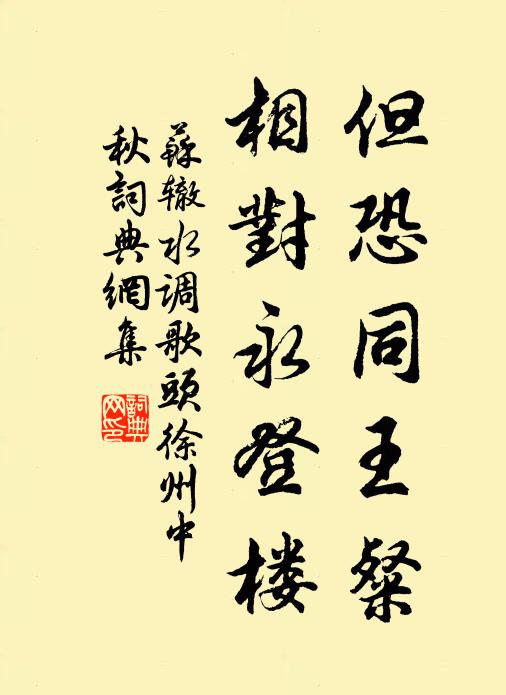 但恐同王粲
相對永登楼
蘇辙水调歌頭徐州中
秋詞典網集
詞典網印